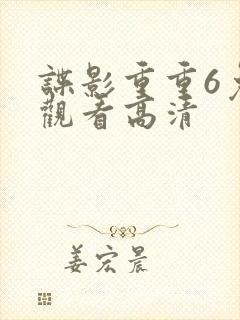 諜影重重6
觀看高清
姜宏晨